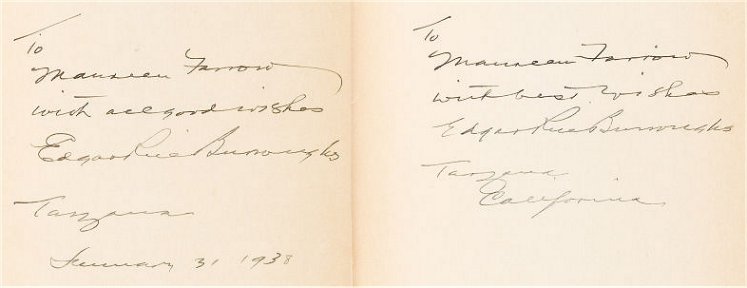 To
Maureen Farrow
with all good wishes
Edgar Rice Burroughs
Tarzana
January 31 1938
To
Maureen Farrow
with best wishes
Edgar Rice Burroughs
Tarzana
California